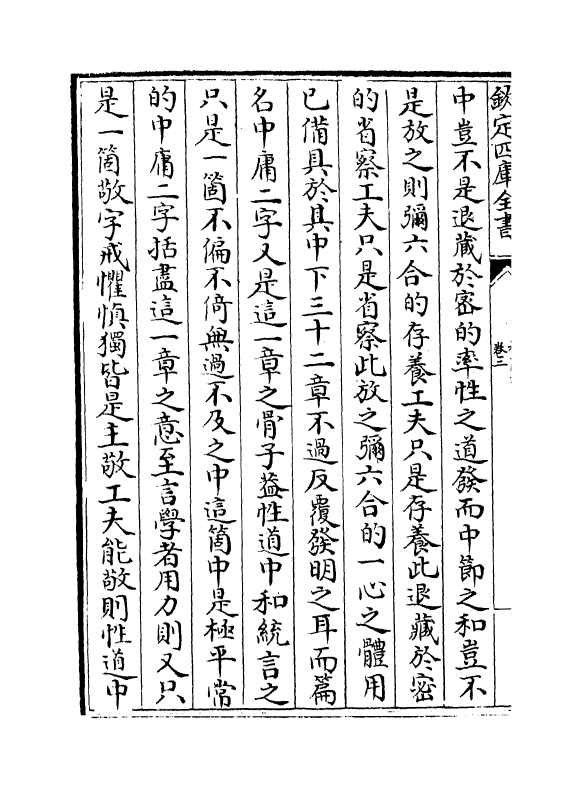 欽定四庫全書
卷三
中豈不是退藏於密的率性之道發而中節之和豈不
是放之則彌六合的存養工夫只是存養此退藏於密
的省察工夫只是省察此放之彌六合的一心之體用
已備具於其中下三十二章不過反覆發明之耳而篇
名中庸二字又是這一章之骨子葢性道中和統言之
只是一箇不偏不倚無過不及之中這箇中是極平常
的中庸二字括盡這一章之意至言學者用力則又只
是一箇敬字戒懼慎獨皆是主敬工夫能敬則性道中